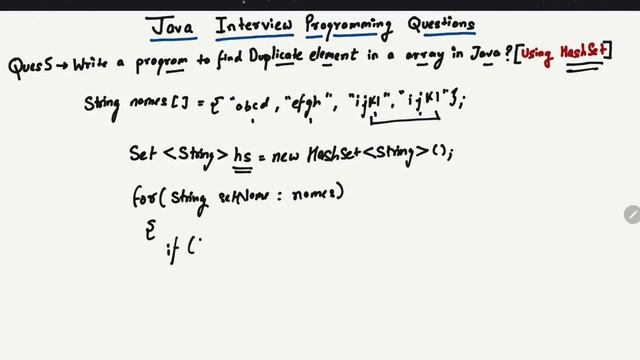 Java Interview Programming Questions
Ques5 → Write a program to find Duplicate element in a array in Java? [Using HashSet]
String names[] = {"abcd, "efgh", "ijkl", "ijkl"};
Set <String> hs = new HashSet<String>();
for(String setName : names)
{
if (